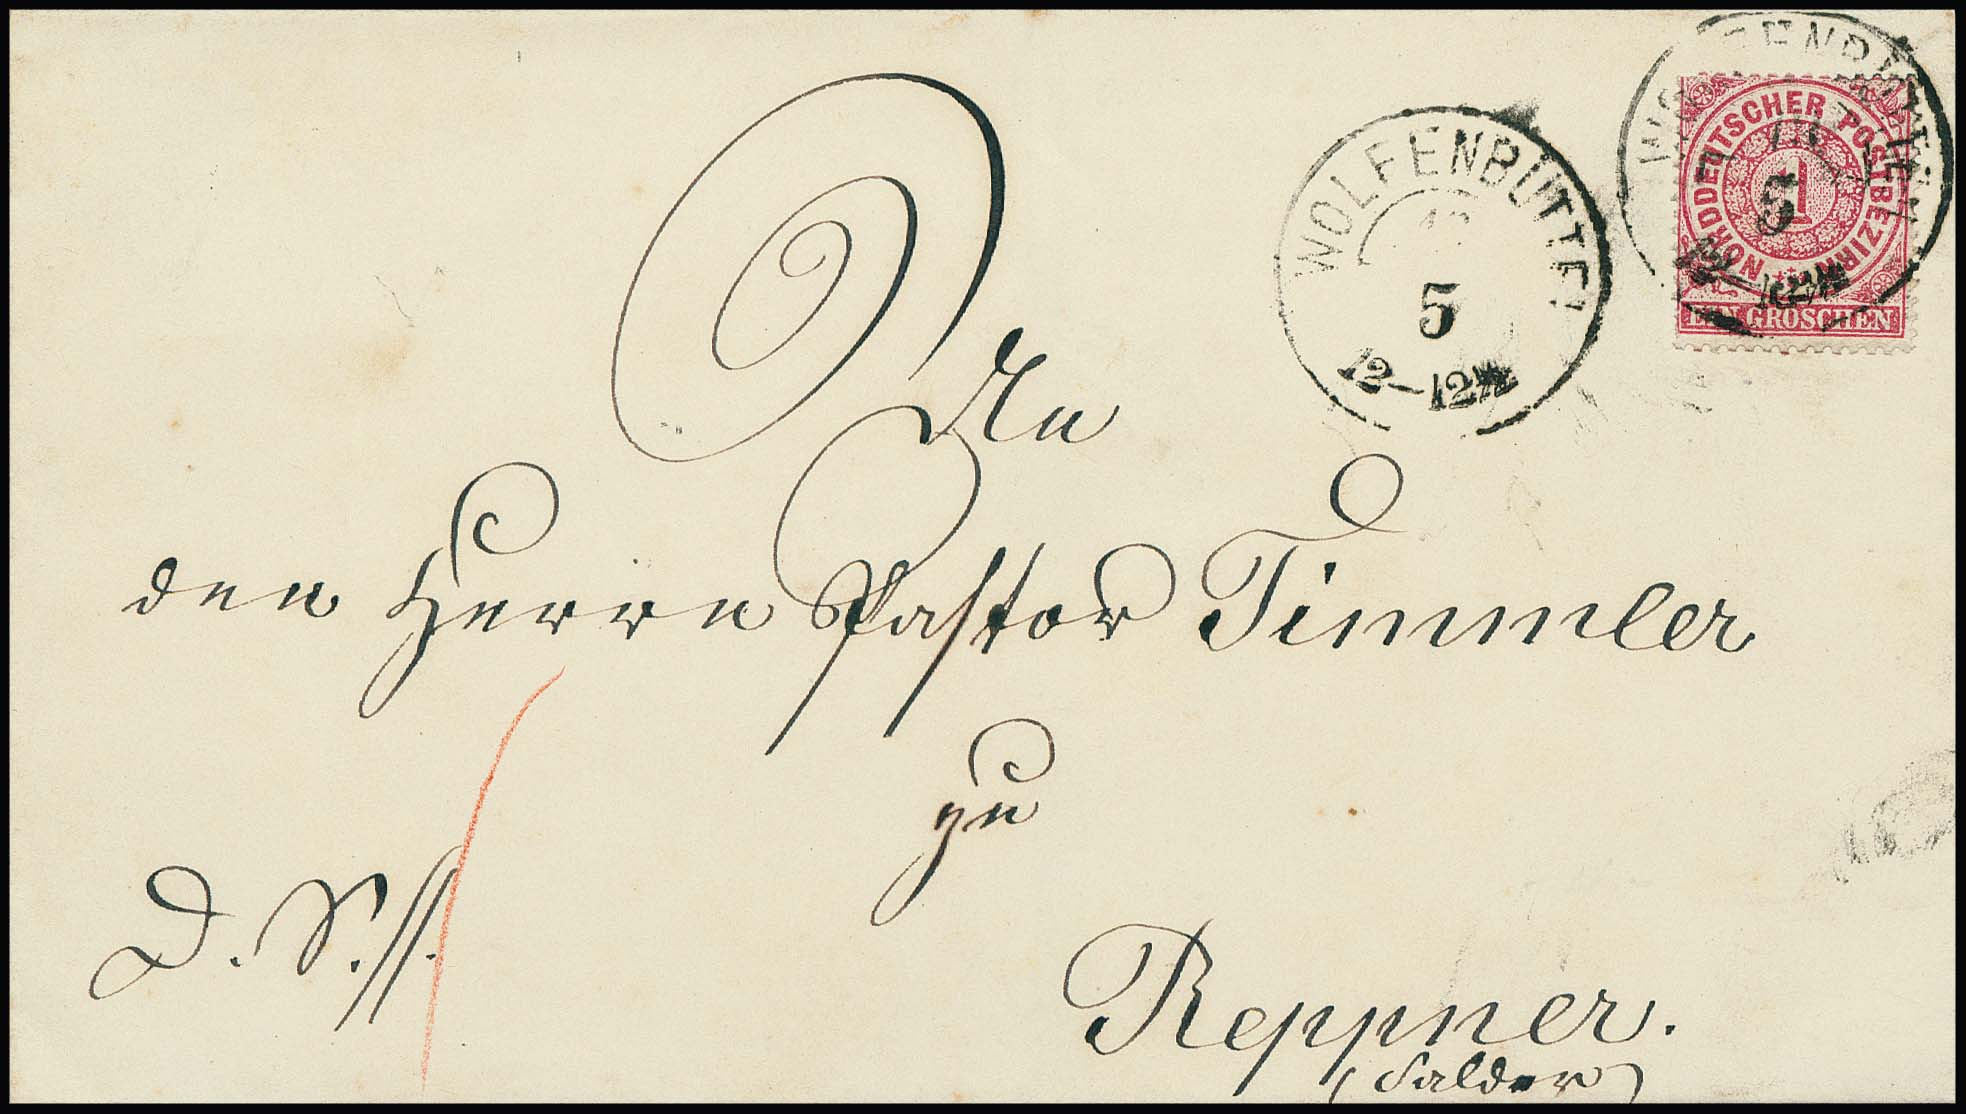 WOLFENBÜTTEL
5
12-12½
NORDDEUTSCHER POSTBEZIRK
1
EIN GROSCHEN
An
den Herrn Pastor Timmler
zu
D. S.
Reppner.
(Salder)